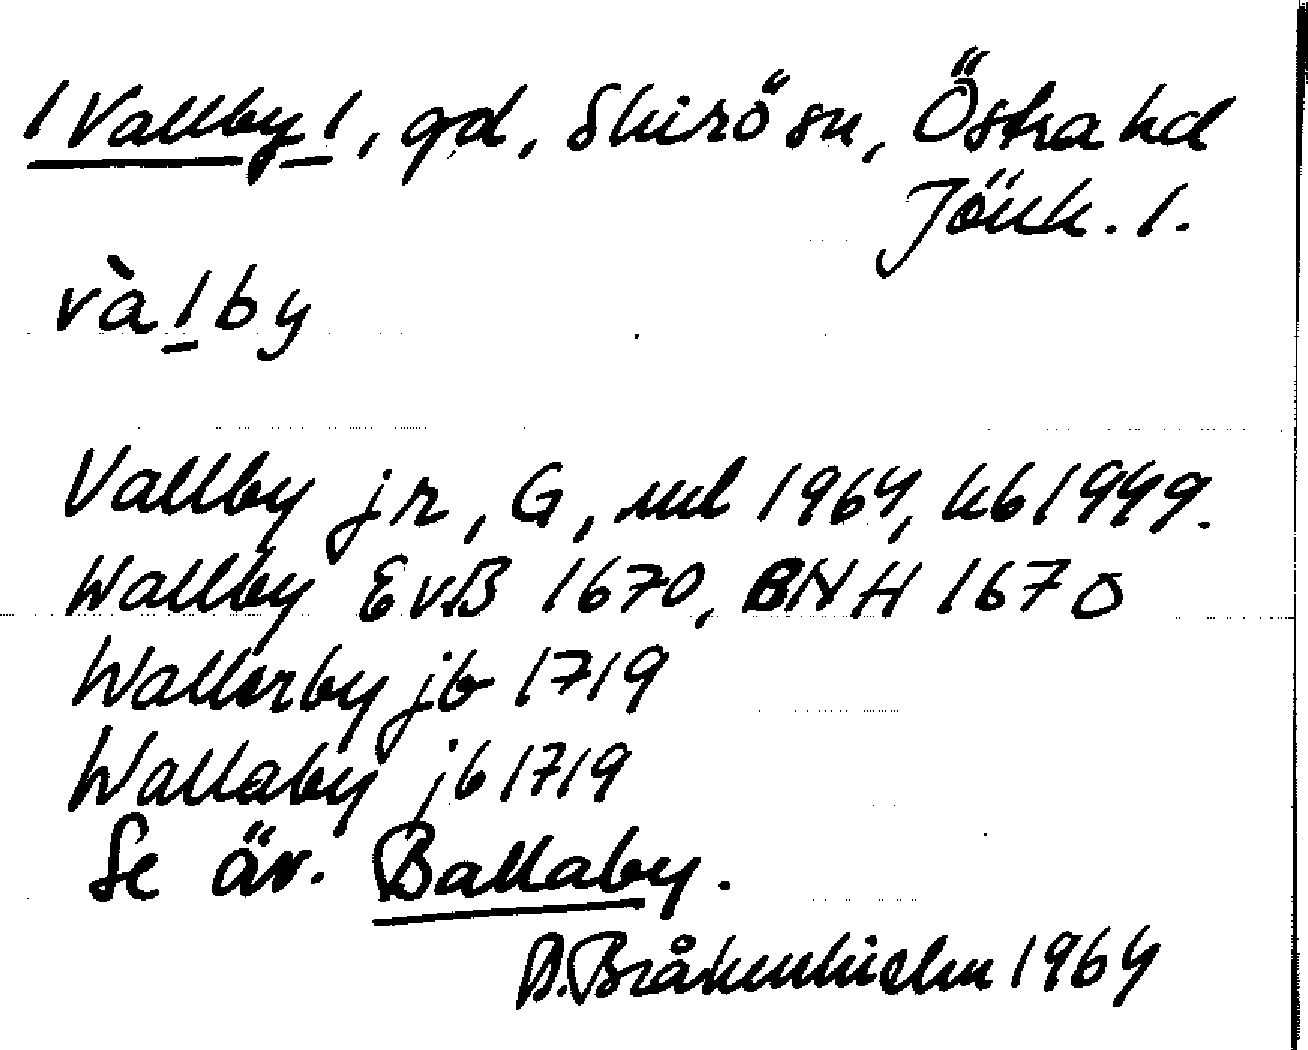 /Vallby/, gd, Skirö sn, Östra hd
Jönk. l.
vàlby
Vallby jr, G, ml 1964, kb 1949.
Wallby EvB 1670, BNH 1670
Wallerby jb 1719
Wallaby jb 1719
Se äv. Ballaby.
B. Bråkenhielm 1964